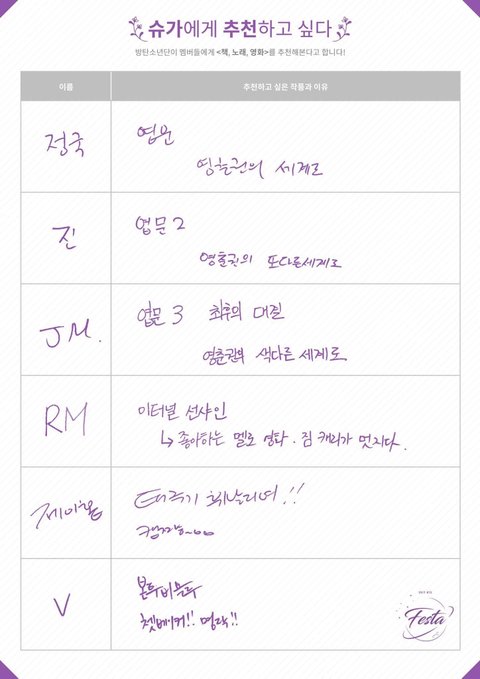 슈가에게 추천하고 싶다
방탄소년단이 멤버들에게 <책, 노래, 영화>를 추천해본다고 합니다!
이름
추천하고 싶은 작품과 이유
정국
엽문
영춘권의 세계로
진
엽문 2
영춘권의 또다른세계로
JM.
엽문 3 최후의 대결
영춘권의 색다른 세계로.
RM
이터널 선샤인
↳ 좋아하는 멜로 영화. 짐 캐리가 멋지다.
제이홉
태극기 휘날리며!!
V
본투비블루
쳇베이커!! 명작!!
Festa